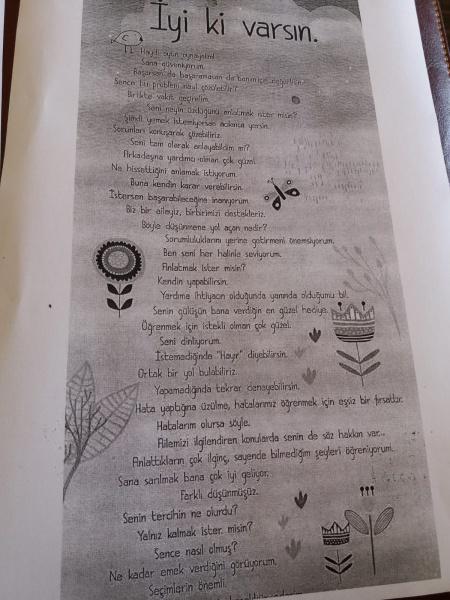 İyi ki varsın.
Haydi oyun oynayalım!
Sana güveniyorum.
Başarsan da başaramasan da benim için değerlisin.
Sence bu problemi nasıl çözebiliriz?
Birlikte vakit geçirelim.
Seni neyin üzdüğünü anlatmak ister misin?
Şimdi yemek istemiyorsan acıkınca yersin.
Sorunları konuşarak çözebiliriz.
Seni tam olarak anlayabildim mi?
Arkadaşına yardımcı olman çok güzel.
Ne hissettiğini anlamak istiyorum.
Buna kendin karar verebilirsin.
İstersen başarabileceğine inanıyorum.
Biz bir aileyiz, birbirimizi destekleriz.
Böyle düşünmene yol açan nedir?
Sorumluluklarını yerine getirmeni önemsiyorum.
Ben seni her halinle seviyorum.
Anlatmak ister misin?
Kendin yapabilirsin.
Yardıma ihtiyacın olduğunda yanında olduğumu bil.
Senin gülüşün bana verdiğin en güzel hediye.
Öğrenmek için istekli olman çok güzel.
Seni dinliyorum.
İstemediğinde "Hayır" diyebilirsin.
Ortak bir yol bulabiliriz.
Yapamadığında tekrar deneyebilirsin.
Hata yaptığına üzülme, hatalarımız öğrenmek için eşsiz bir fırsattır.
Hatalarım olursa söyle.
Ailemizi ilgilendiren konularda senin de söz hakkın var...
Anlattıkların çok ilginç, sayende bilmediğim şeyleri öğreniyorum.
Sana sarılmak bana çok iyi geliyor.
Farklı düşünmüşüz.
Senin tercihin ne olurdu?
Yalnız kalmak ister misin?
Sence nasıl olmuş?
Ne kadar emek verdiğini görüyorum.
Seçimlerin önemli.